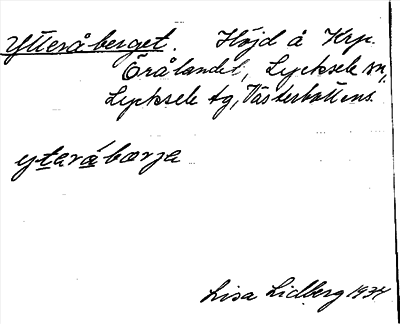 Ytteråberget. Höjd å Krp.
Örålandet, Lycksele sn,
Lycksele tg, Västerbottens.
ytaråbærja
Lisa Lidberg 1934